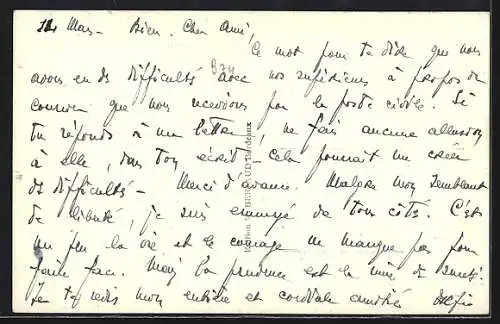 12 Mars - Bien Cher Ami,
Ce mot pour te dire que nous
avons eu des difficultés avec nos supérieurs à propos du
courrier que nous recevions par la poste civile. Si
tu réponds à ma lettre, ne fais aucune allusion
à elle, dans ton écrit - cela pourrait me créer
des difficultés - Merci d'avance. Malgré mon semblant
de liberté, je suis ennuyé de tous côtés. C'est
un peu la vie et le courage ne manque pas pour
faire face. Mais la prudence est la mère de sûreté.
Je te redis mon entière et cordiale amitié
Bordeaux